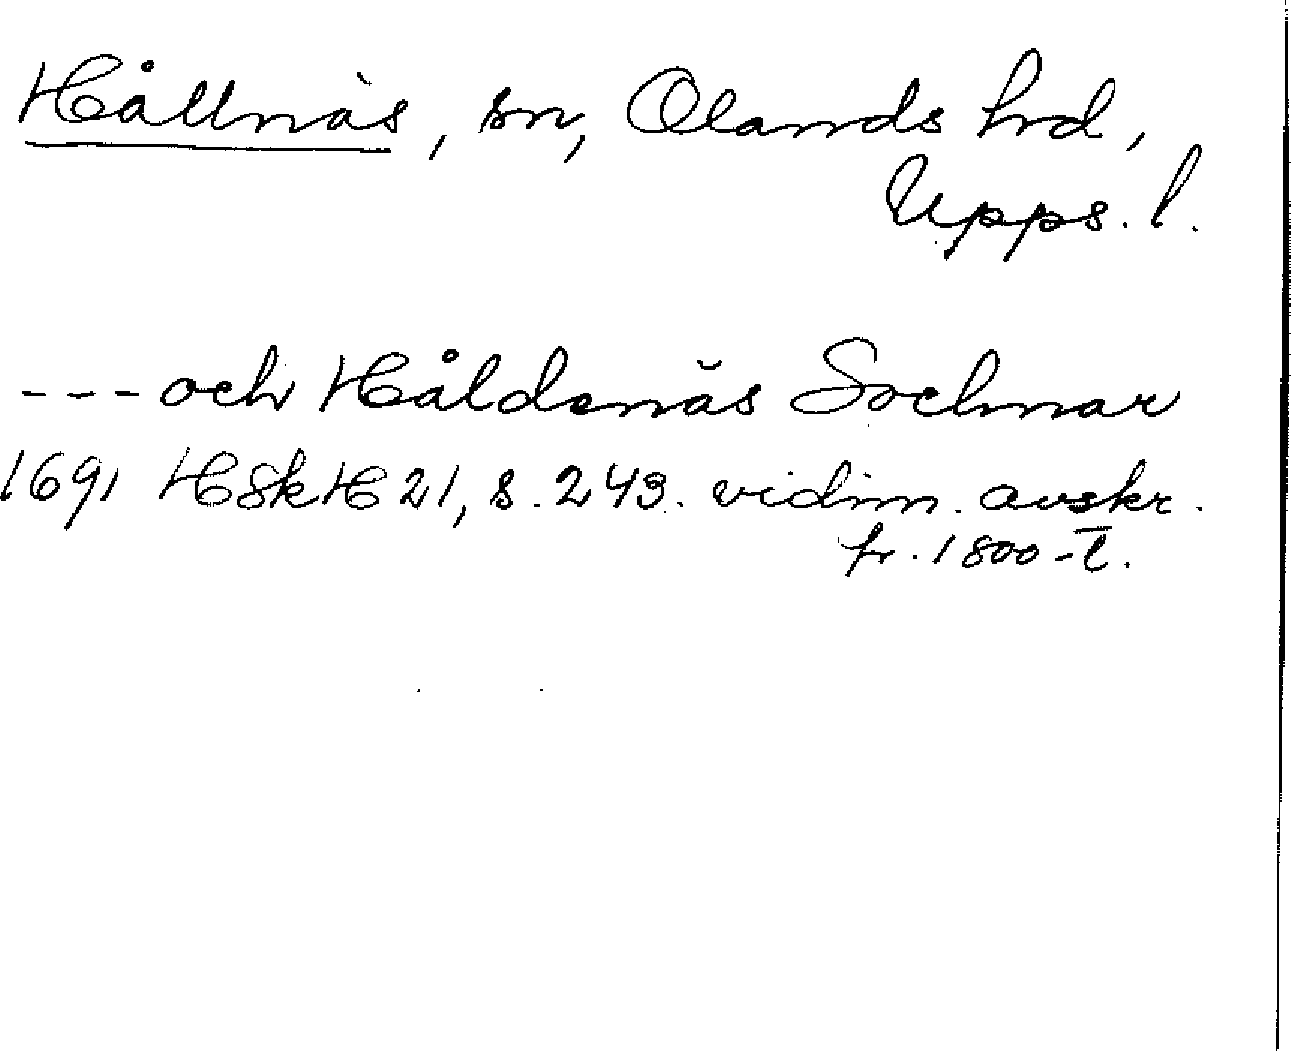 Hållnäs, sn, Olands hrd,
Upps. l.
--- och Håldsnäs Sochnar
1691 HSkH 21, s. 243. vidim. avskr.
fr. 1800-t.